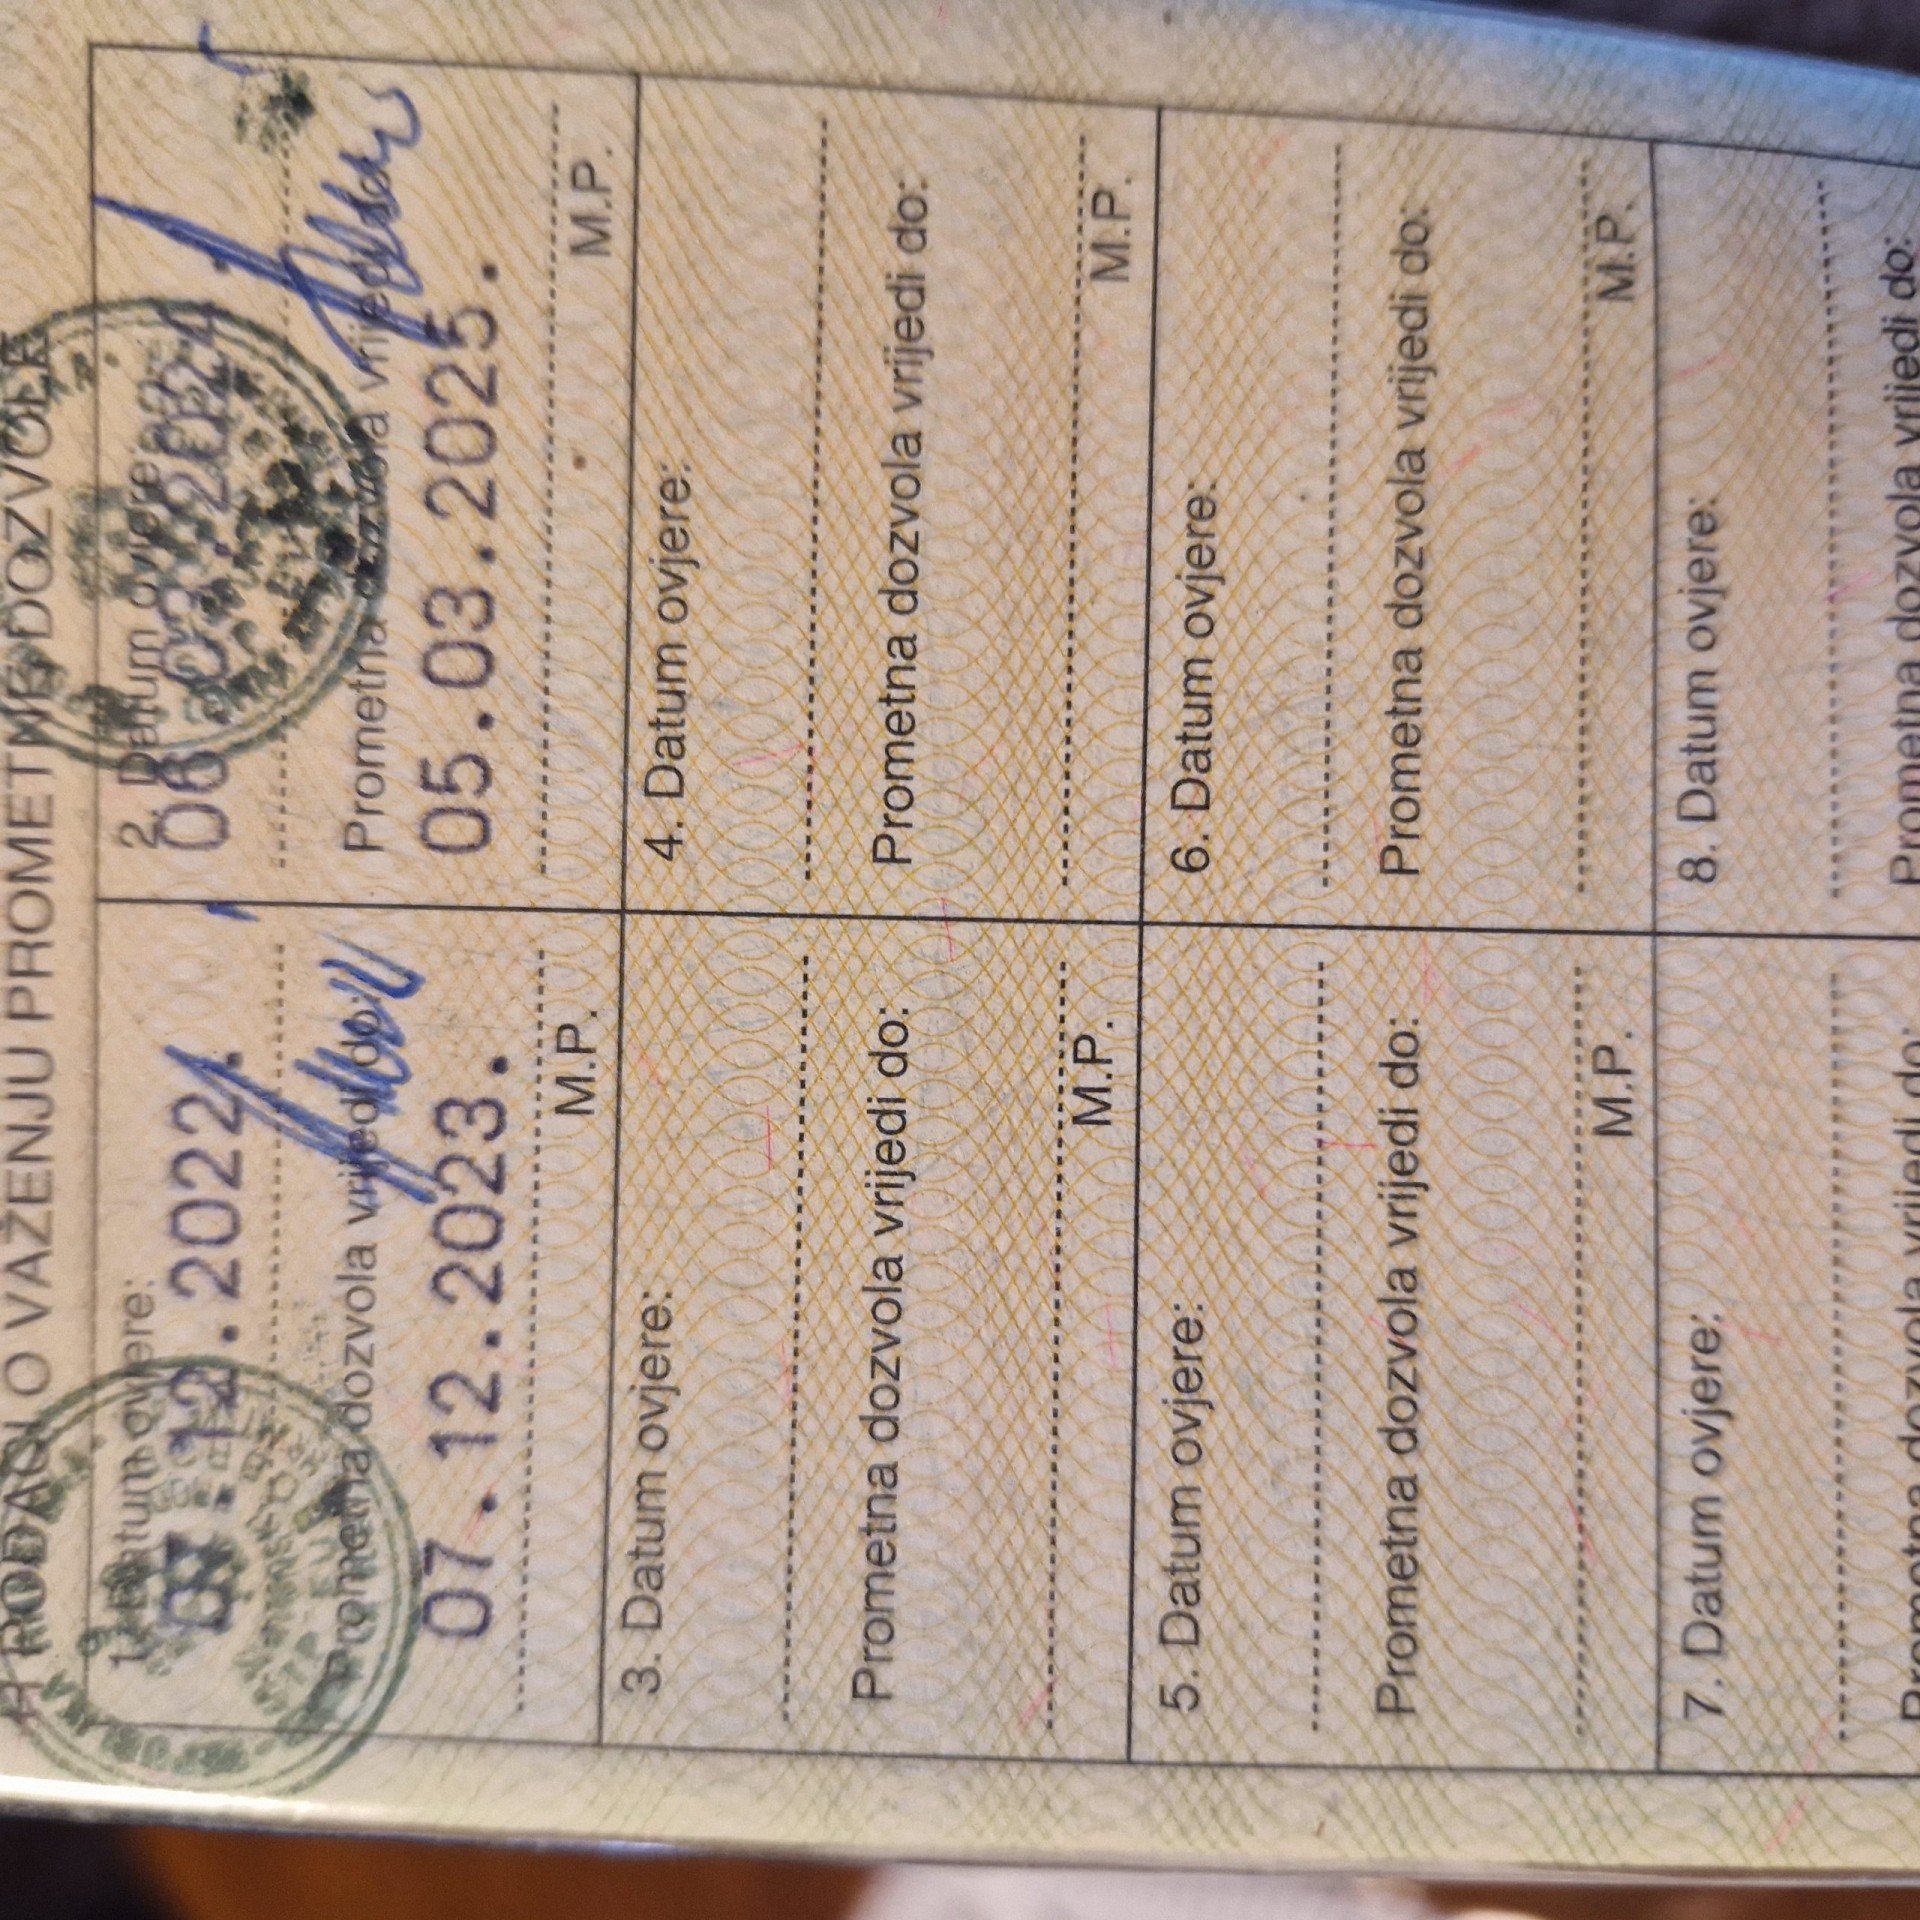 PODACI O VAŽENJU PROMETNE DOZVOLE
1. Datum ovjere:
12.2022.
Prometna dozvola vrijedi do:
07.12.2023.
M.P.
2. Datum ovjere:
06.03.2024.
Prometna dozvola vrijedi do:
05.03.2025.
M.P.
3. Datum ovjere:
Prometna dozvola vrijedi do:
M.P.
4. Datum ovjere:
Prometna dozvola vrijedi do:
M.P.
5. Datum ovjere:
Prometna dozvola vrijedi do:
M.P.
6. Datum ovjere:
Prometna dozvola vrijedi do:
M.P.
7. Datum ovjere:
Prometna dozvola vrijedi do:
8. Datum ovjere:
Prometna dozvola vrijedi do: